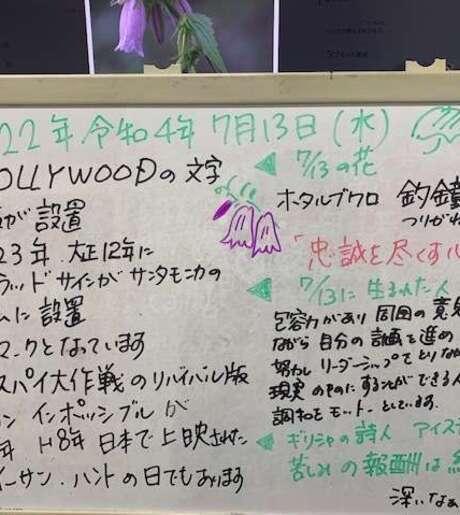 22年 令和4年 7月13日(水)
OLLYWOODの文字
が 設置
23年 大正12年に
ッドサインが サンタモニカの
に 設置
マークとなっています
スパイ大作戦のリバイバル版
ン インポッシブル が
年 H8年 日本で上映された
イーサン・ハントの日でもあります
◀ 7/13の花
ホタルブクロ 釣鐘
つりがね
「忠誠を尽くす心
◀ 7/13に生まれた人
包容力があり 周囲の意見
ながら 自分の計画を進め
努力し リーダーシップをとりなが
現実のものにすることができる人
調和をモットーとしています。
◀ ギリシャの詩人 アイス
苦しみの報酬は
深いなぁ